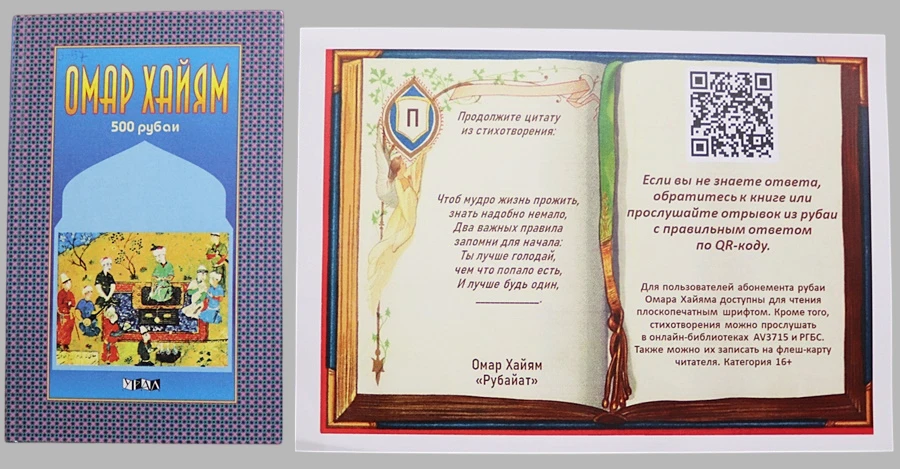 ОМАР ХАЙЯМ
500 рубаи
УРАЛ
П
Продолжите цитату
из стихотворения:
Чтоб мудро жизнь прожить,
знать надобно немало,
Два важных правила
запомни для начала:
Ты лучше голодай,
чем что попало есть,
И лучше будь один,
____________.
Омар Хайям
«Рубайат»
Если вы не знаете ответа,
обратитесь к книге или
прослушайте отрывок из рубаи
с правильным ответом
по QR-коду.
Для пользователей абонемента рубаи
Омара Хайяма доступны для чтения
плоскопечатным шрифтом. Кроме того,
стихотворения можно прослушать
в онлайн-библиотеках AV3715 и РГБС.
Также можно их записать на флеш-карту
читателя. Категория 16+